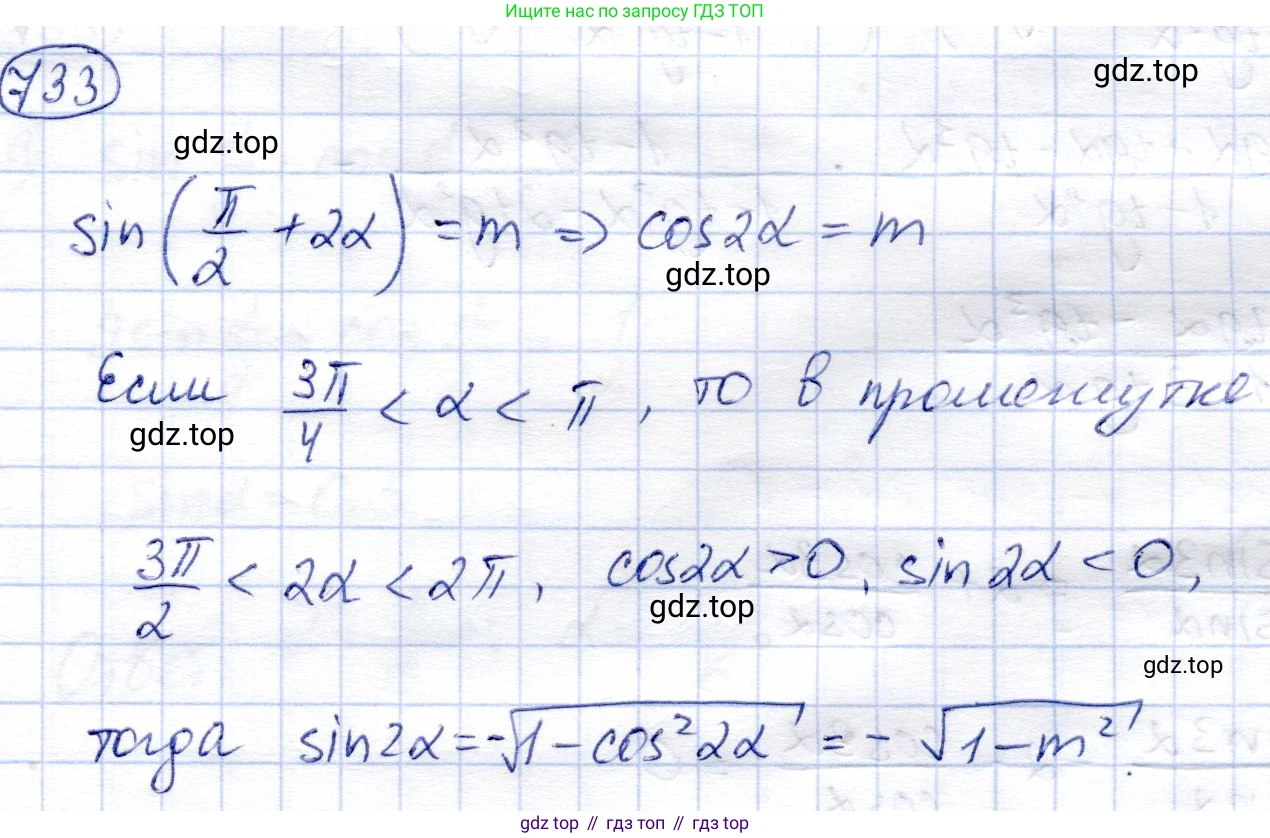 Ищите нас по запросу ГДЗ ТОП
733
gdz.top
gdz.top
sin(π/2 + 2α) = m => cos2α = m
gdz.top
Если 3π/4 < α < π, то в промежутке
gdz.top
3π/2 < 2α < 2π, cos2α > 0, sin2α < 0,
gdz.top
gdz.top
тогда sin2α = -√(1 - cos²2α) = -√(1 - m²).
gdz top // гдз топ // gdz top